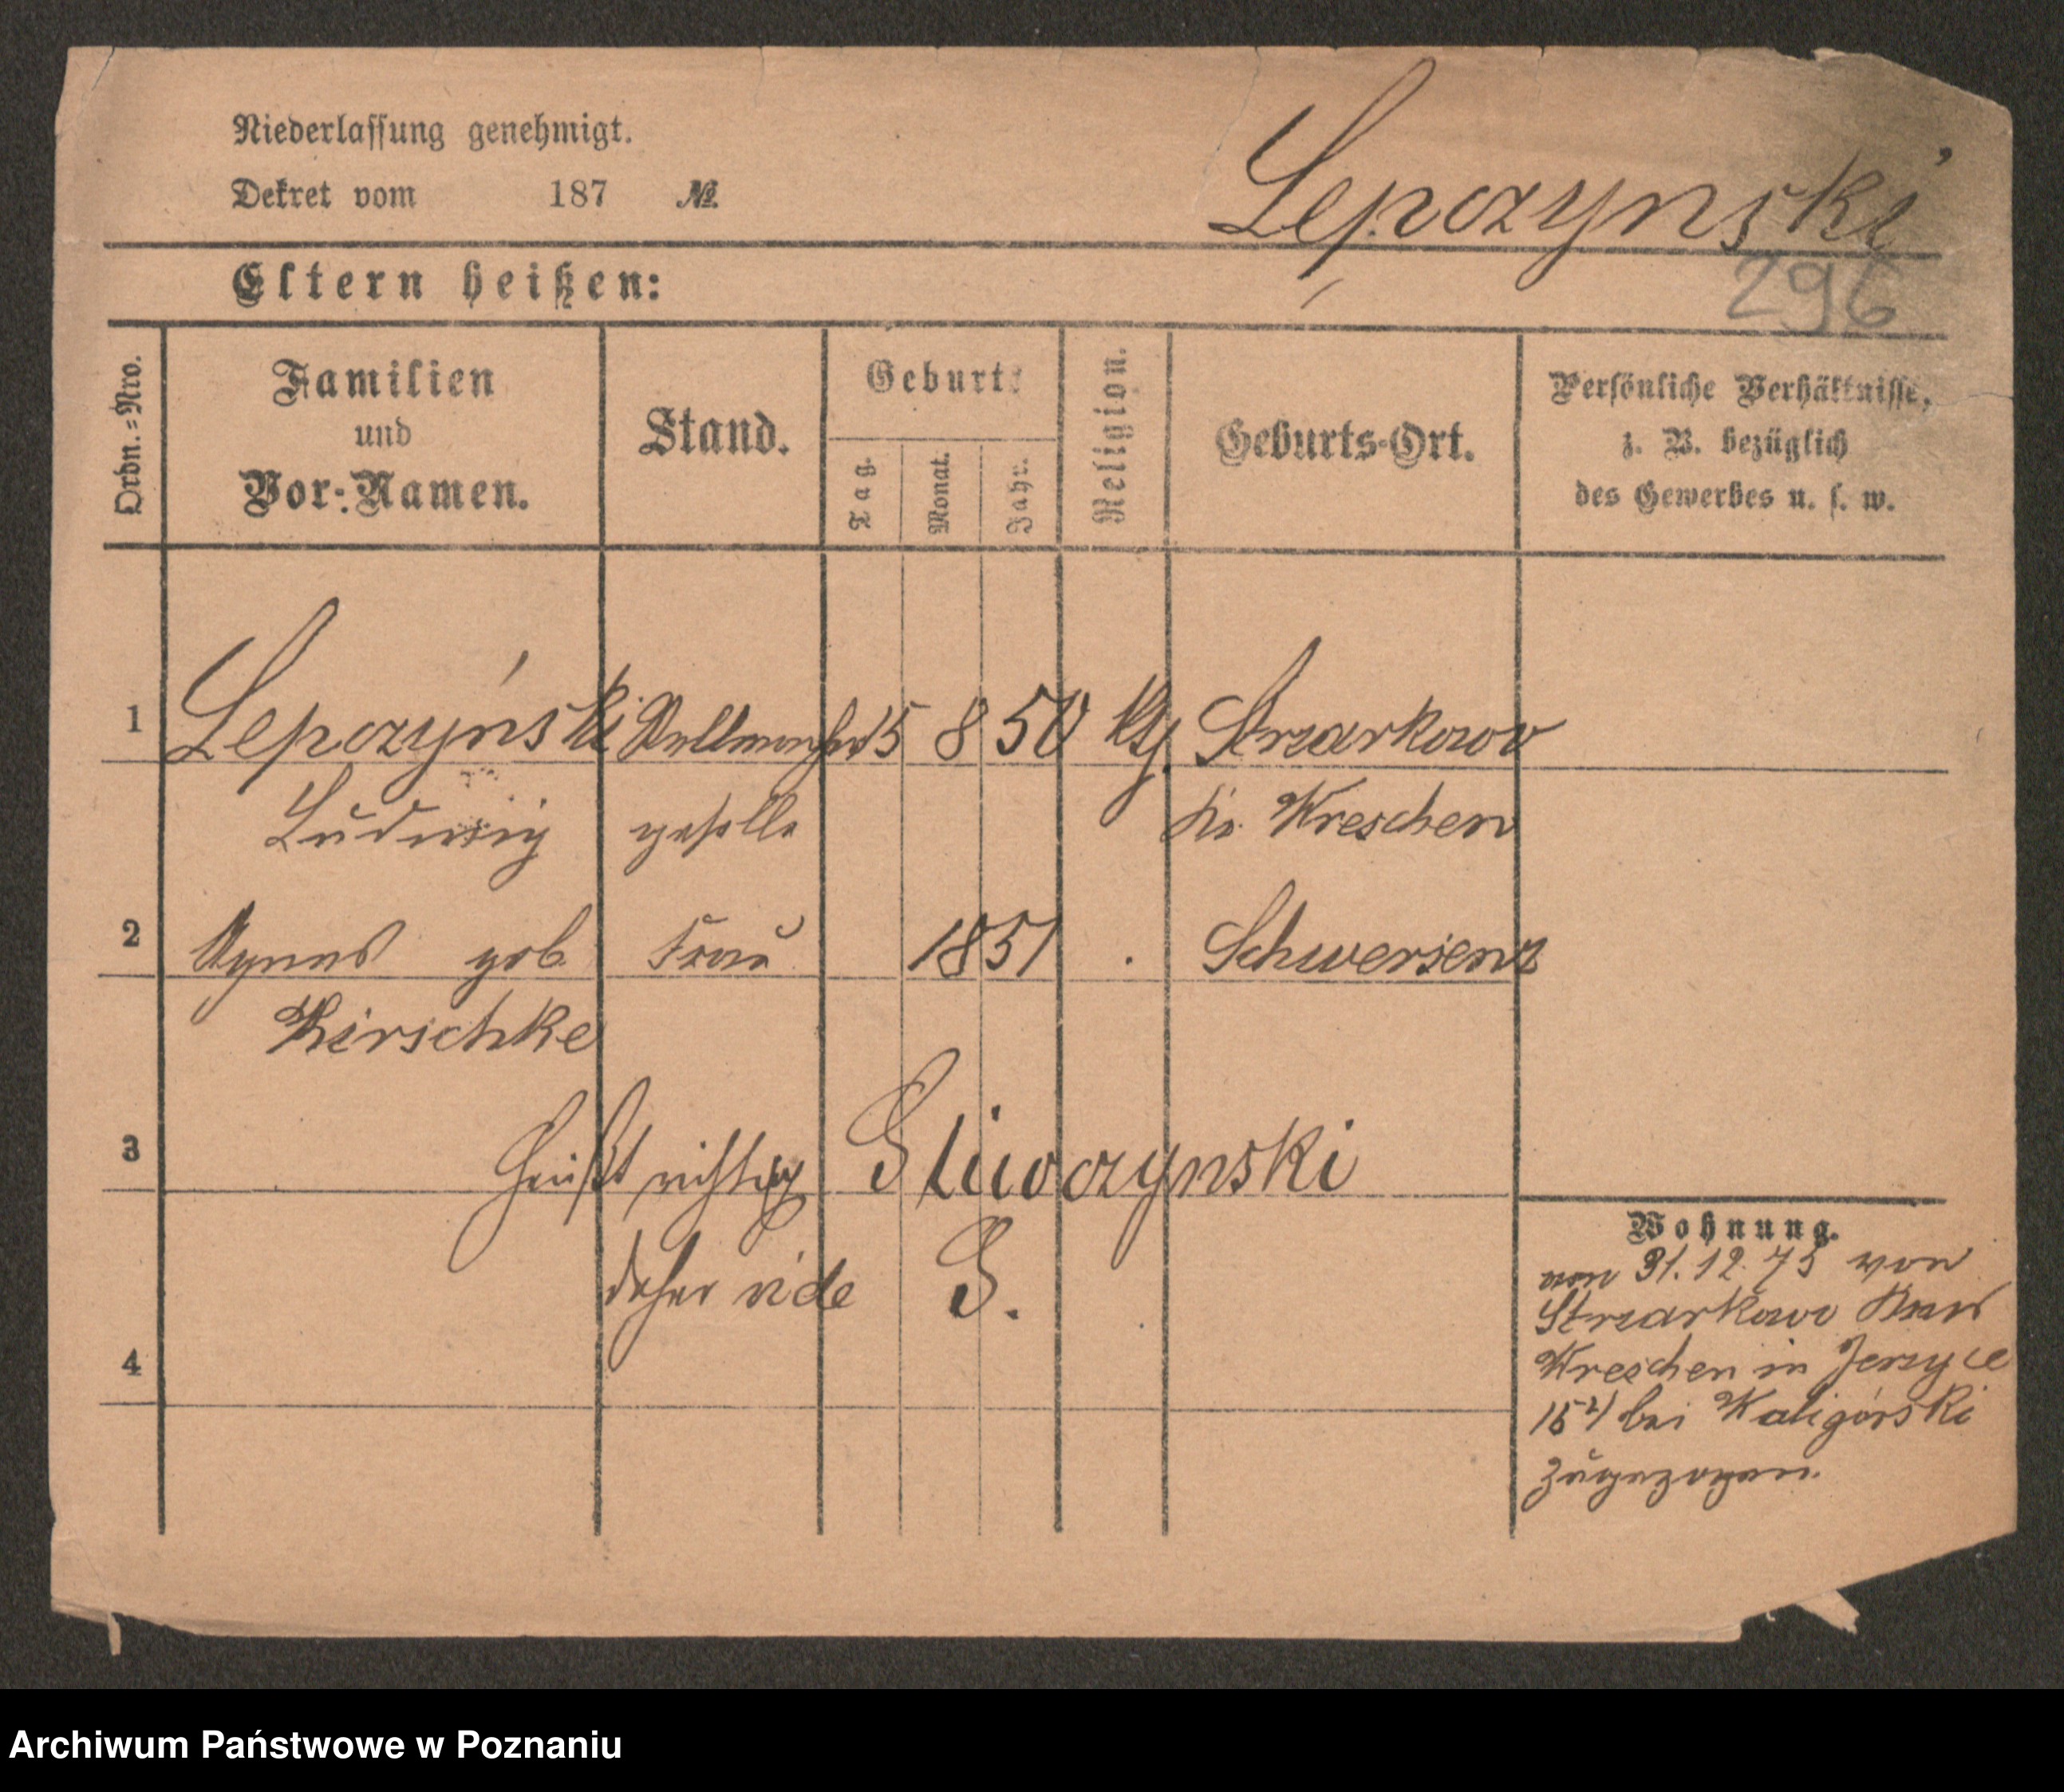 Niederlassung genehmigt.
Dekret vom 187 №
Lepczyński
296
Eltern heißen:
Ordn.=Nro.
Familien
und
Vor=Namen.
Stand.
Geburts
Tag.
Monat.
Jahr.
Religion.
Geburts=Ort.
Persönliche Verhältnisse,
z. B. bezüglich
des Gewerbes u. s. w.
1 Lepczyński Stellmacher 15 8 50 ktl. Strzarkowo
Ludwig geselle Kr. Wreschen
2 Agnes geb. Frau 1851 Schwersenz
Hirschke
3 heißt richtig Sliwczynski
daher vide S.
4
Wohnung.
31.12.75 von
Strzarkowo Kreis
Wreschen in Jerzyce
bei Kaligórski
zugezogen.
Archiwum Państwowe w Poznaniu